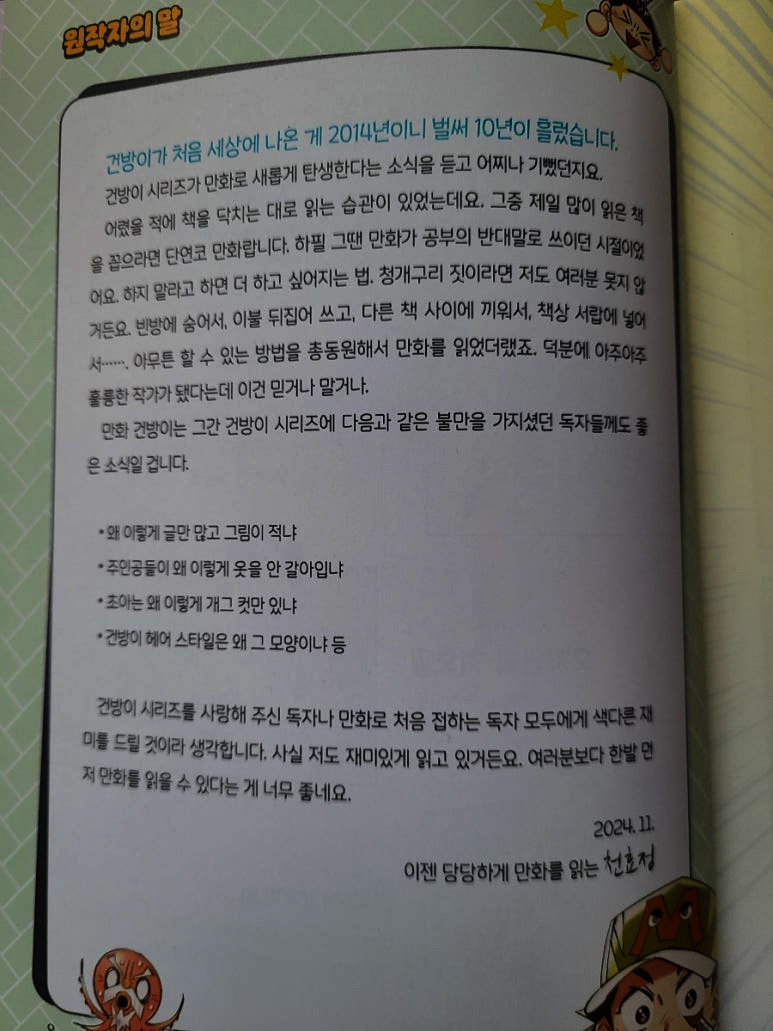 원작자의 말
건방이가 처음 세상에 나온 게 2014년이니 벌써 10년이 흘렀습니다.
건방이 시리즈가 만화로 새롭게 탄생한다는 소식을 듣고 어찌나 기뻤던지요.
어렸을 적에 책을 닥치는 대로 읽는 습관이 있었는데요. 그중 제일 많이 읽은 책
을 꼽으라면 단연코 만화랍니다. 하필 그땐 만화가 공부의 반대말로 쓰이던 시절이었
어요. 하지 말라고 하면 더 하고 싶어지는 법. 청개구리 짓이라면 저도 여러분 못지 않
거든요. 빈방에 숨어서, 이불 뒤집어 쓰고, 다른 책 사이에 끼워서, 책상 서랍에 넣어
서……. 아무튼 할 수 있는 방법을 총동원해서 만화를 읽었더랬죠. 덕분에 아주아주
훌륭한 작가가 됐다는데 이건 믿거나 말거나.
만화 건방이는 그간 건방이 시리즈에 다음과 같은 불만을 가지셨던 독자들께도 좋
은 소식일 겁니다.
• 왜 이렇게 글만 많고 그림이 적냐
• 주인공들이 왜 이렇게 옷을 안 갈아입냐
• 초아는 왜 이렇게 개그 컷만 있냐
• 건방이 헤어 스타일은 왜 그 모양이냐 등
건방이 시리즈를 사랑해 주신 독자나 만화로 처음 접하는 독자 모두에게 색다른 재
미를 드릴 것이라 생각합니다. 사실 저도 재미있게 읽고 있거든요. 여러분보다 한발 먼
저 만화를 읽을 수 있다는 게 너무 좋네요.
2024. 11.
이젠 당당하게 만화를 읽는 천효정
M